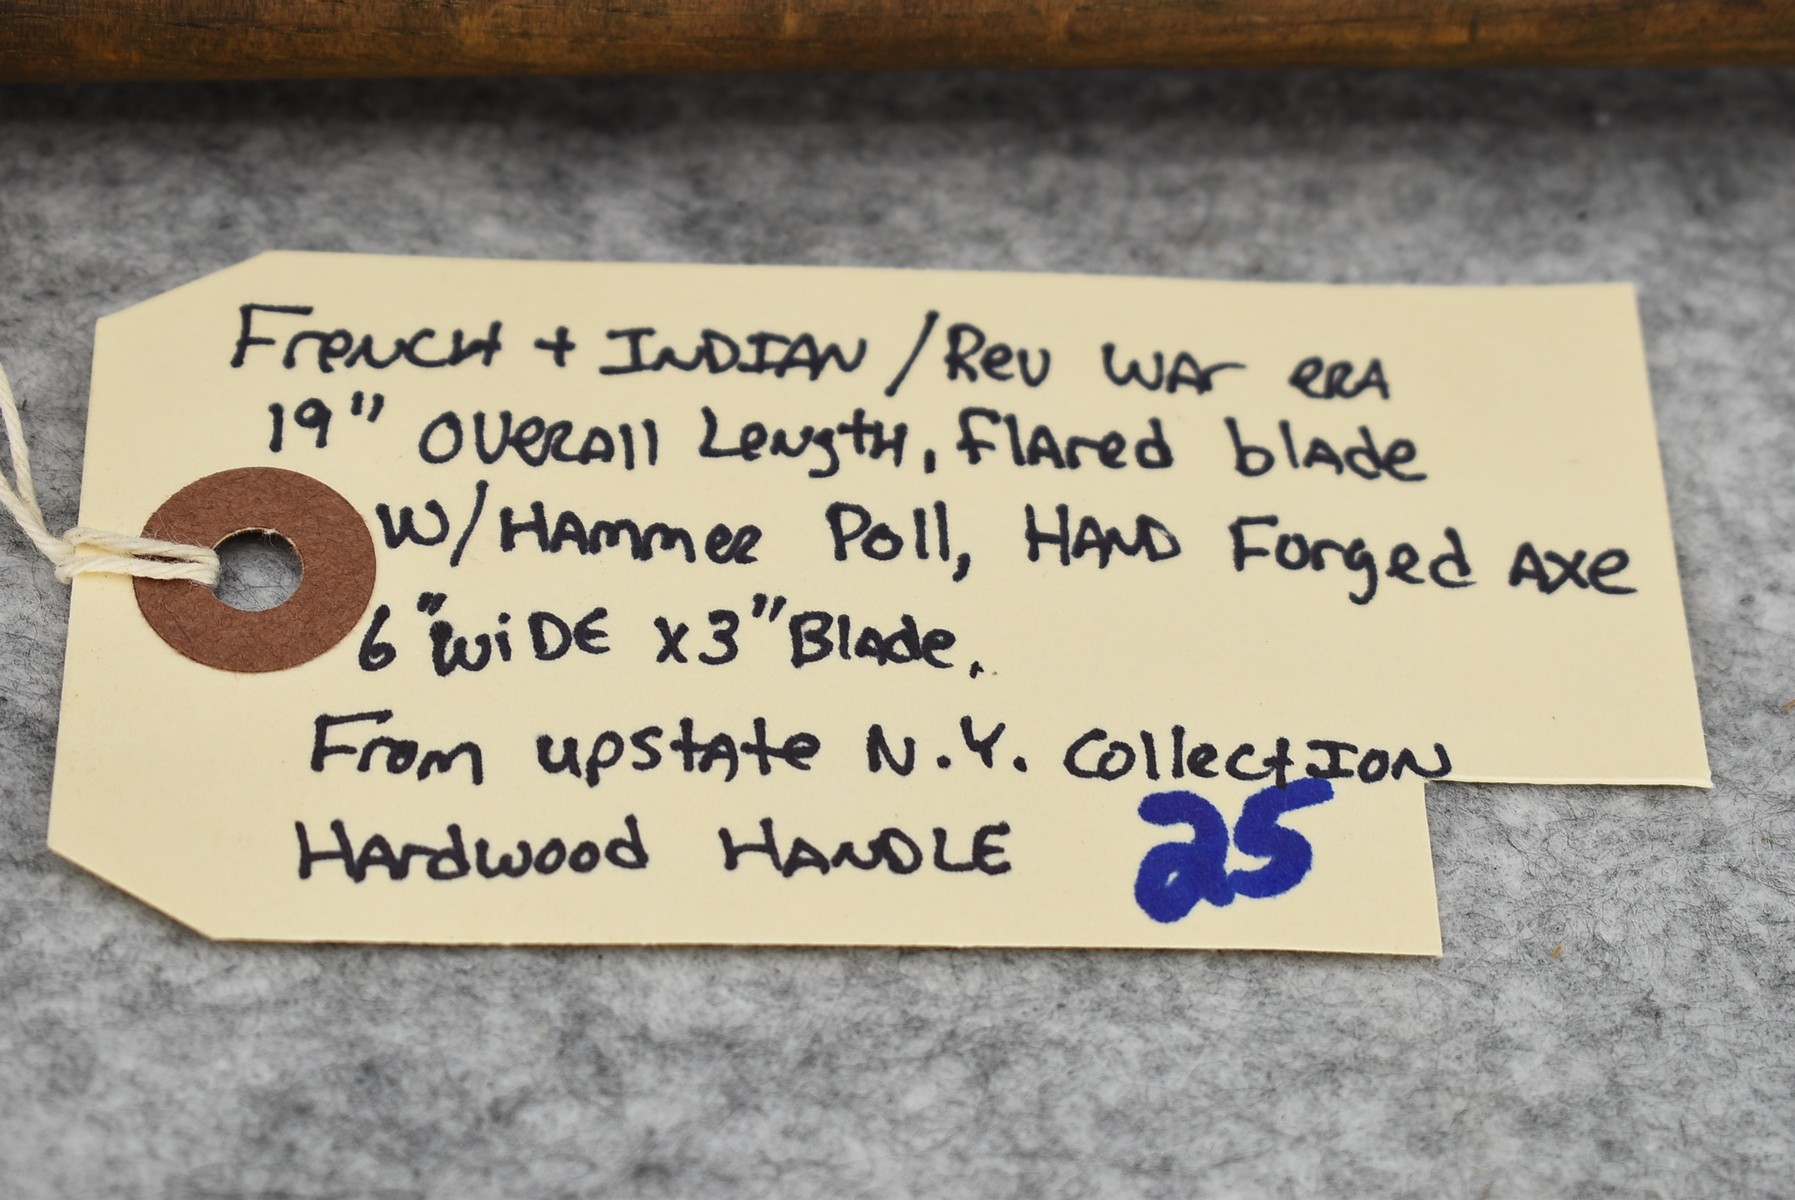 French + Indian / Rev War era
19" overall Length, flared blade
w/ Hammer Poll, Hand Forged Axe
6" wide x 3" Blade.
From upstate N.Y. Collection
Hardwood Handle
25